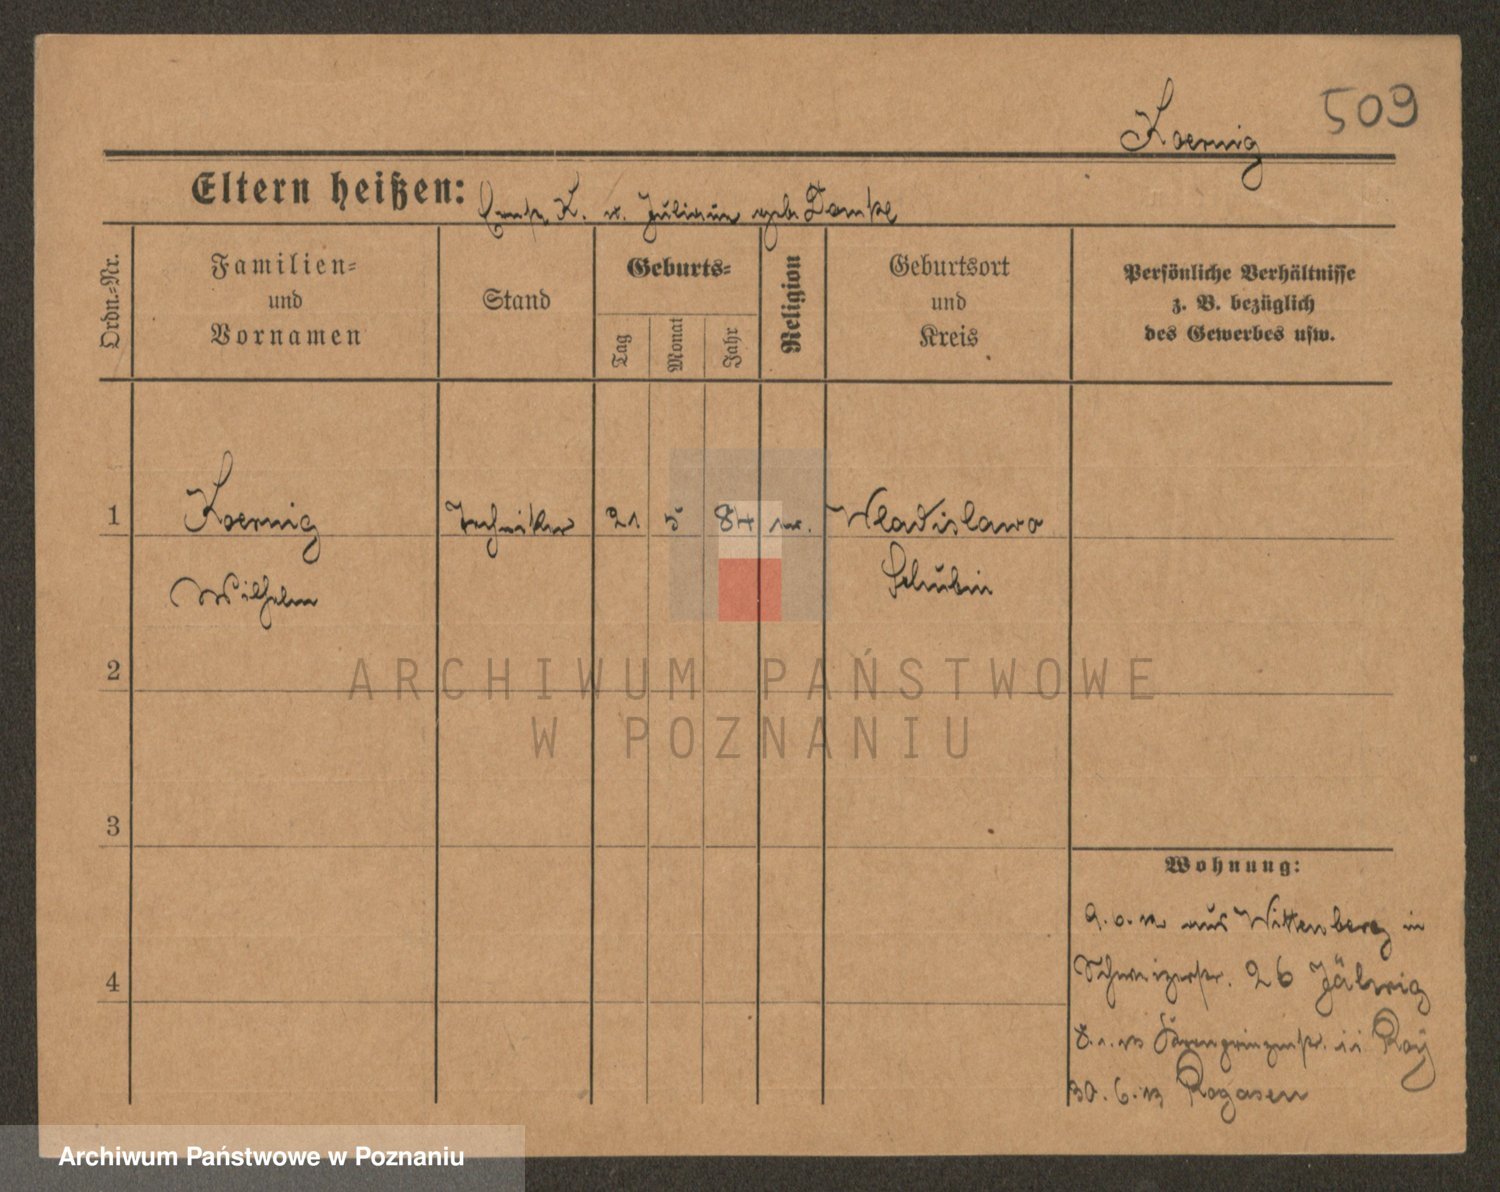 509
Koernig
Eltern heißen: K. u. Juliane geb.
Ordn.-Nr.
Familien=
und
Vornamen
Stand
Geburts=
Tag
Monat
Jahr
Religion
Geburtsort
und
Kreis
Persönliche Verhältnisse
z. B. bezüglich
des Gewerbes usw.
1
Koernig
Techniker
21.
5
84
Wladislawo
Wilhelm
Schubin
2
3
4
Wohnung:
aus Wittenberg in
Schweizerstr. 26 Jährig
Kronprinzenstr.
30. 6. Rogasen
ARCHIWUM PAŃSTWOWE
W POZNANIU
Archiwum Państwowe w Poznaniu